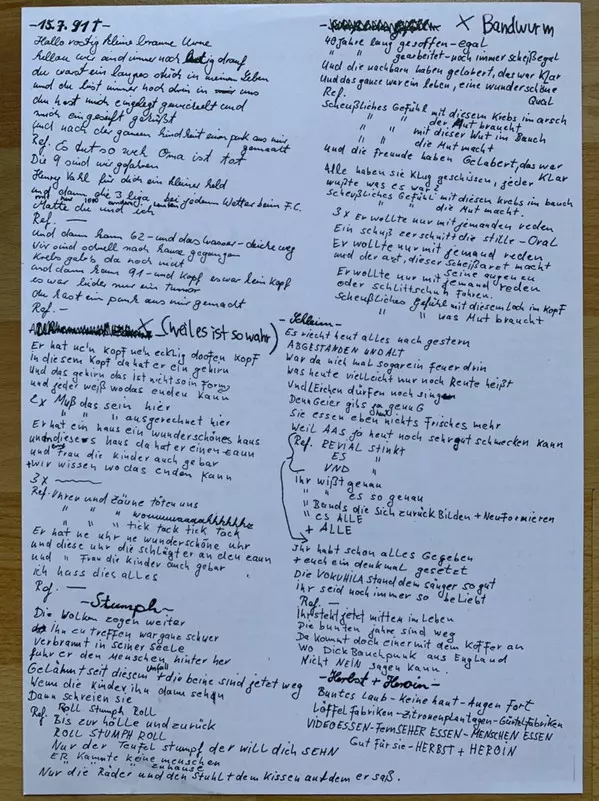 -15.7.91†-
Hallo rostig kleine braune Urne
du warst ein langes stück in meinen Leben
und du bist immer noch drin in uns
du hast mich eingelegt gewickelt und
mich eingeseift geküßt
und nach der ganzen Kindheit einen punk aus mir gemacht
Ref. Es tut so weh Oma ist tot
Die 9 sind wir gefahren
Henry Vahl für dich ein kleiner held
und dann die 3 liga bei jedem Wetter beim F.C.
Matte du und ich
Ref. —
Und dann kam 62 - und das wasser - deiche weg
Wir sind schnell nach hause gegangen
Krebs gab es da noch nicht
und dann kam 91 - und Kopf es war kein Kopf
es war leider nur ein Tumor
du hast ein punk aus mir gemacht
Ref. -
X (weil es ist so wahr)
Er hat neh'n Kopf neh ecklig doofen Kopf
In diesem Kopf da hat er ein gehirn
Und das gehirn das ist nicht so in Form
und jeder weiß wo das enden kann
2x Muß das sein hier
" " " ausgerechnet hier
Er hat ein haus ein wunderschönes haus
und um dieses haus da hat er einen zaun
und Frau die Kinder auch gebar
+ wir wissen wo das enden kann
3x
Ref. Uhren und Zäune töten uns
" " "
" " " tick tack tick tack
Er hat ne uhr ne wunderschöne uhr
und diese uhr die schlägt er an den zaun
und " Frau die Kinder auch gebar
ich hass dies alles
Ref. —
-Stumph-
Die Wolken zogen weiter
ihn zu treffen war ganz schwer
Verbrannt in seiner Seele
fuhr er den Menschen hinter her
Gelähmt seit diesem unfall + die beine sind jetzt weg
Wenn die Kinder ihn dann sehen
Dann schreien sie
Ref. ROLL Stumph Roll
Bis zur hölle und zurück
ROLL STUMPH ROLL
Nur der Teufel stumpf der will dich SEHN
ER Kannte keine menschen
" " zuhause
Nur die Räder und den Stuhl + dem Kissen auf dem er saß.
X Bandwurm
40 Jahre lang gesoffen - egal
" " gearbeitet - noch immer scheißegal
Und die nachbarn haben gelabert, das war klar
Und das ganze war ein leben, eine wunderschöne Qual
Ref.
Scheußliches Gefühl mit diesem Krebs im arsch
" " der Mut braucht
" " mit dieser Wut im Bauch
" " die Mut macht
und die Freunde haben Gelabert, das war Klar
Alle haben sie Klug geschissen, jeder
wußte was es war?
Scheußliches Gefühl mit diesen krebs im bauch
" " die Mut macht.
3x Er wollte nur mit jemanden reden
Ein schuß zerschnitt die stille - Oral
Er wollte nur mit jemand reden
und der arzt, dieser Scheißarzt macht seine augen zu
Er wollte nur mit jemand reden
oder schlittschuh Fahren.
Scheußliches Gefühl mit diesem Loch im Kopf
" " was Mut braucht
-Schleim-
Es riecht heut alles nach gestern
ABGESTANDEN UND ALT
War da nich mal sogar ein feuer drin
Was heute vielleicht nur noch Rente heißt
Und Leichen dürfen noch singen
Denn Geier gibs ja genug
Sie essen eben nichts Frisches mehr
Weil AAS ja heut noch sehr gut schmecken kann
Ref. DEVIAL stinkt
ES "
UND "
Ihr wißt genau
" " es so genau
" Bands die sich zurück Bilden + Neu Formieren
" ES ALLE
+ ALLE
Ihr habt schon alles Gegeben
+ euch ein denkmal gesetzt
Die VOKUHILA stand dem sänger so gut
ihr seid noch immer so beliebt
Ref. —
Ihr steht jetzt mitten im Leben
Die bunten jahre sind weg
Da kommt doch einer mit dem Koffer an
Wo Dick Bauchpunk aus England
Nicht NEIN sagen kann.
-Herbst + Heroin-
Buntes Laub - Keine haut - Augen fort
Löffel fabriken - Zitronenplantagen - Gürtelfabriken
VIDEOESSEN - FERNSEHER ESSEN - MENSCHEN ESSEN
Gut für sie - HERBST + HEROIN